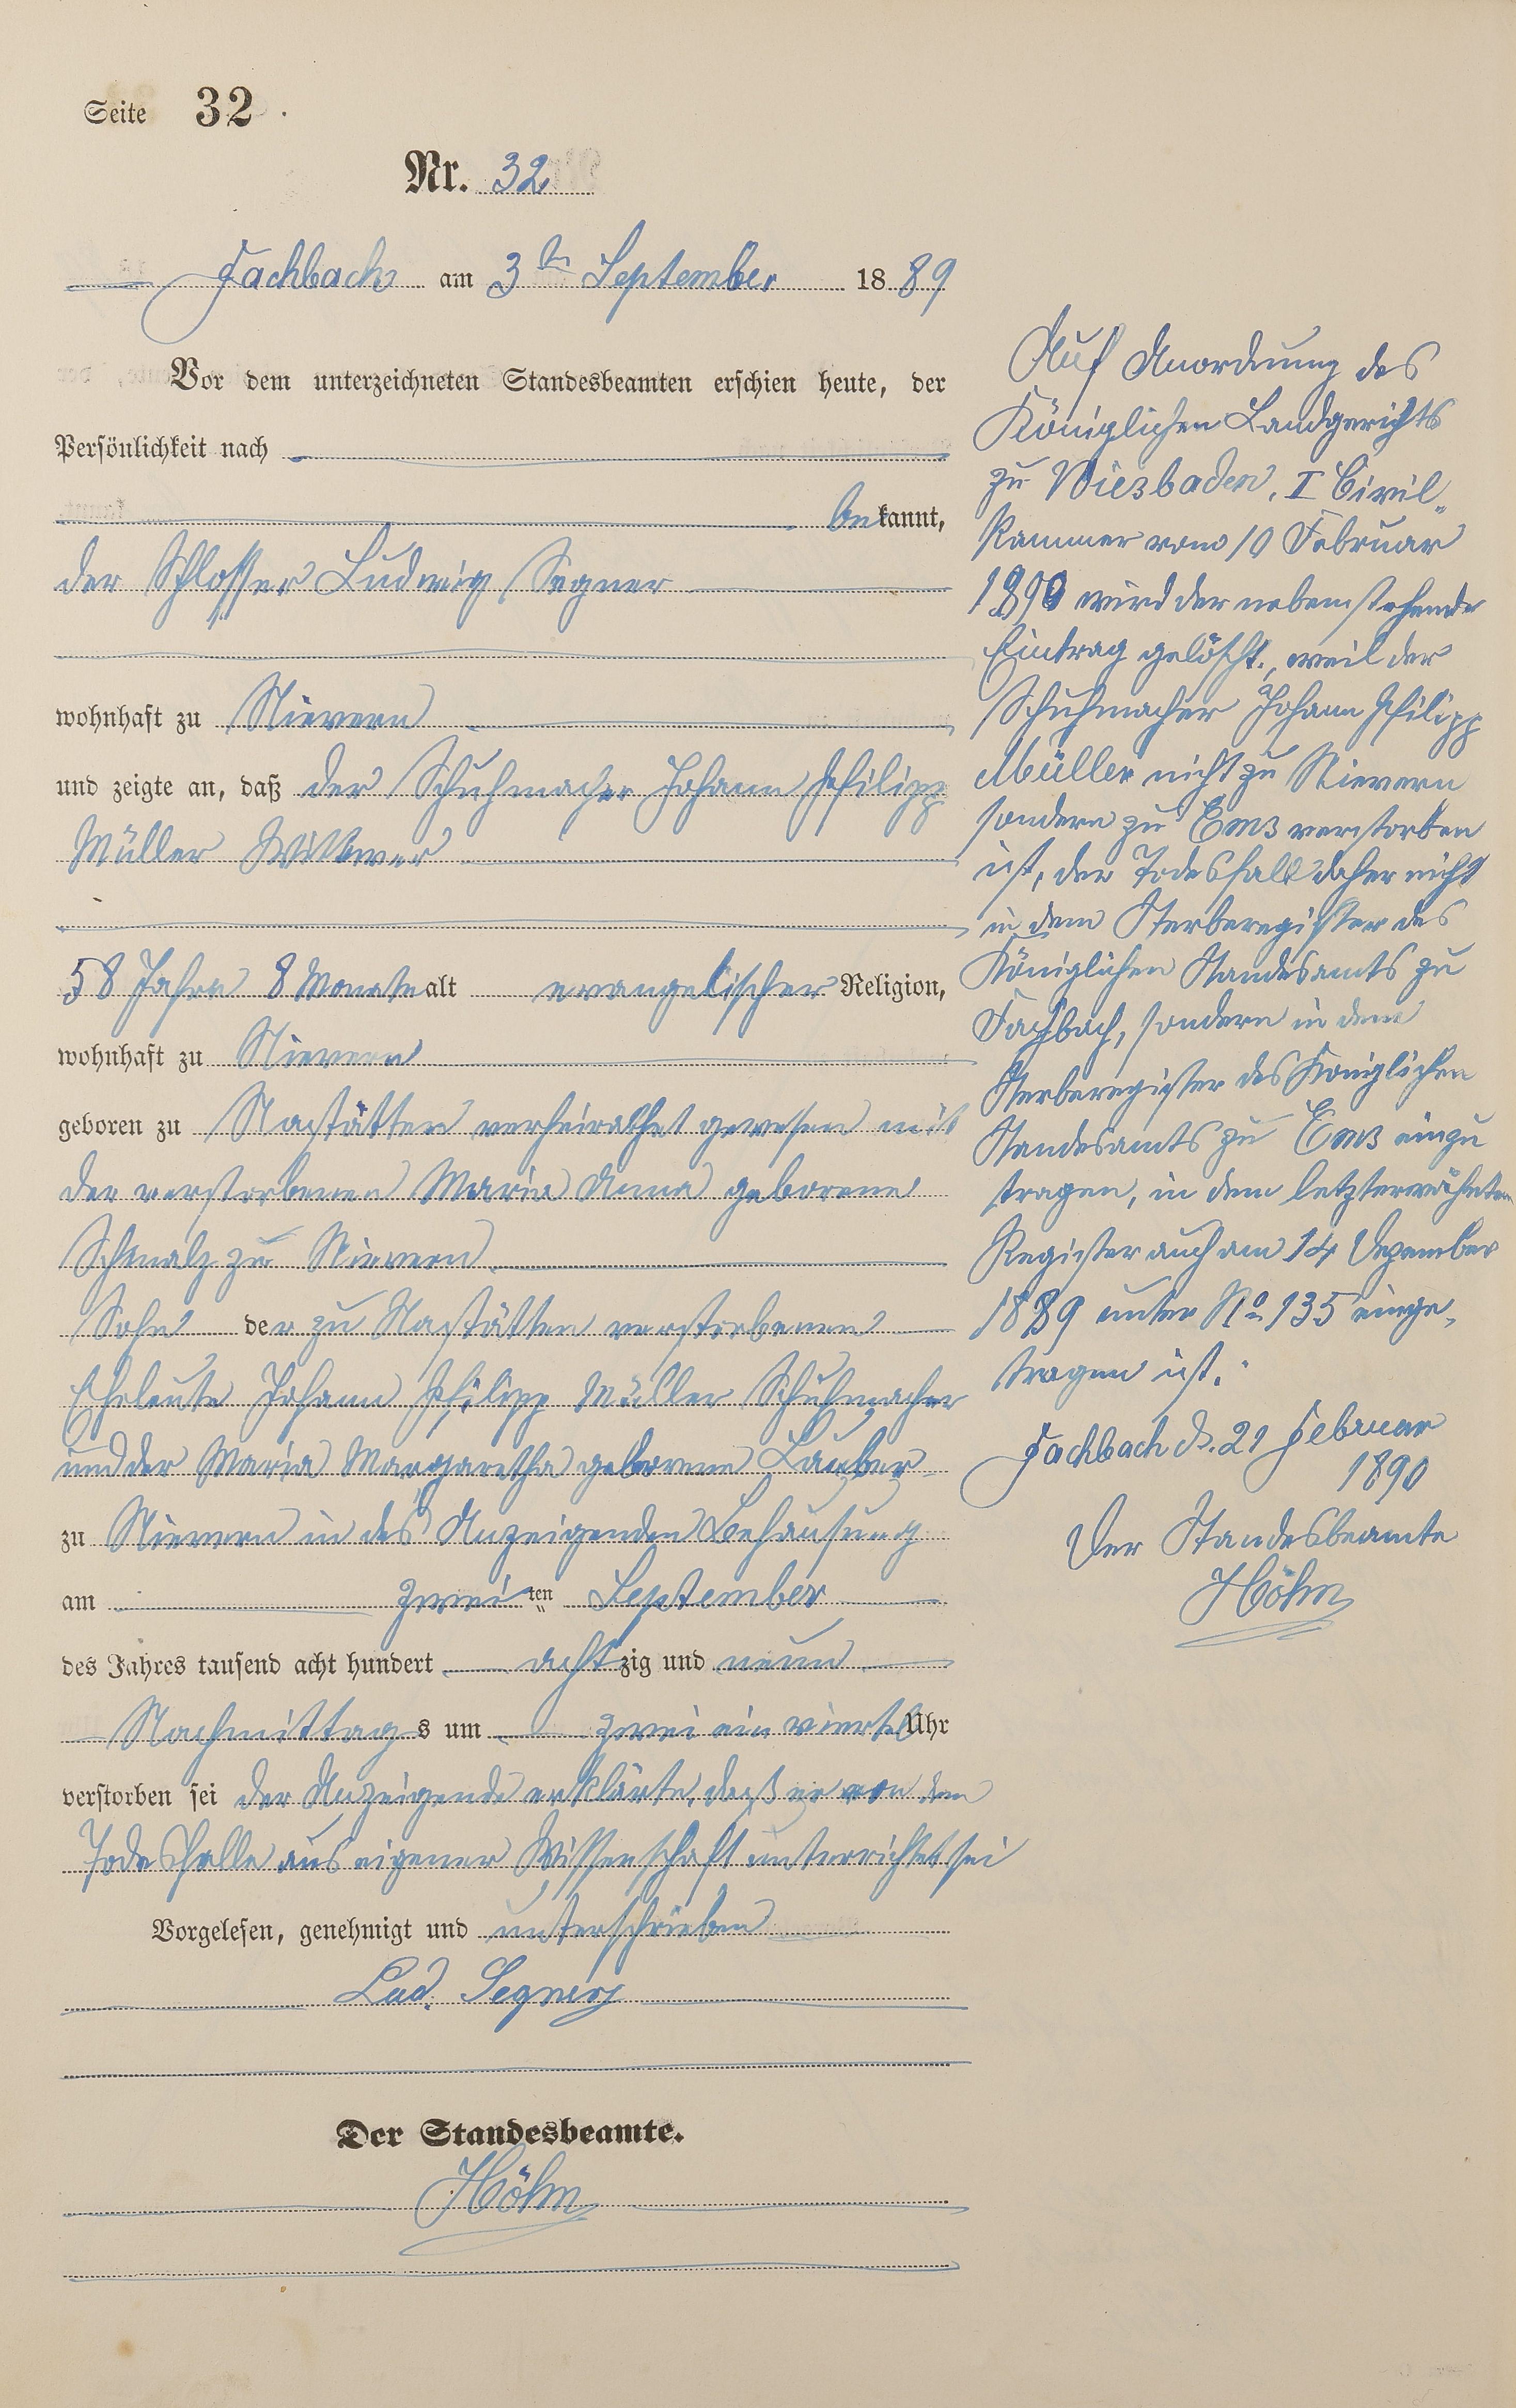 Seite 32.
Nr. 32
Fachbach am 3ten September 1889
Vor dem unterzeichneten Standesbeamten erschien heute, der
Persönlichkeit nach
bekannt,
der Schlosser Ludwig Segner
wohnhaft zu Nievern
und zeigte an, daß der Schuhmacher Johann Philipp
Müller Wittwer
58 Jahre 8 Monate alt evangelischer Religion,
wohnhaft zu Nievern
geboren zu Nastätten verheirathet gewesen mit
der verstorbenen Maria Anna geborene
Schmalz zu Nievern
Sohn der zu Nastätten verstorbenen
Eheleute Johann Philipp Müller Schuhmacher
und der Maria Margaretha geborene Lauber
zu Nievern in des Anzeigenden Behausung
am zweiten September
des Jahres tausend acht hundert achtzig und neun
Nachmittags um zwei ein viertel Uhr
verstorben sei der Anzeigende erklärte, daß er von dem
Todesfalle aus eigener Wissenschaft unterrichtet sei
Vorgelesen, genehmigt und unterschrieben
Lud. Segner
Der Standesbeamte.
Höhn
Auf Anordnung des
Königlichen Landgerichts
zu Wiesbaden, I Civil-
Kammer vom 10 Februar
1890 wird der nebenstehende
Eintrag gelöscht, weil der
Schuhmacher Johann Philipp
Müller nicht zu Nievern
sondern zu Ems verstorben
ist, der Todesfall daher nicht
in dem Sterberegister des
Königlichen Standesamts zu
Fachbach, sondern in dem
Sterberegister des Königlichen
Standesamts zu Ems einzu
tragen, in dem letzterwähnten
Register auch am 14 Dezember
1889 unter No 135 einge-
tragen ist.
Fachbach d. 21 Februar
1890
Der Standesbeamte
Höhn